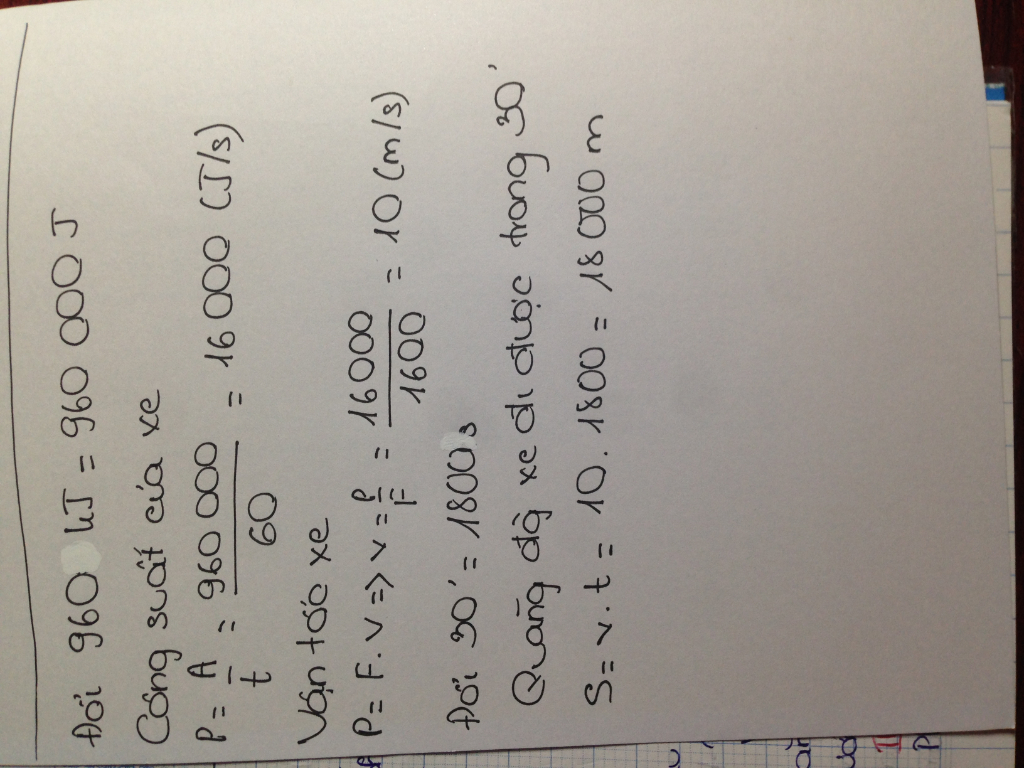 Đổi 960 kJ = 960 000 J
Công suất của xe
P = A/t = 960 000/60 = 16 000 (J/s)
Vận tốc xe
P = F.v => v = P/F = 16000/1600 = 10 (m/s)
Đổi 30' = 1800s
Quãng đg xe đi được trong 30'
S = v.t = 10.1800 = 18 000 m